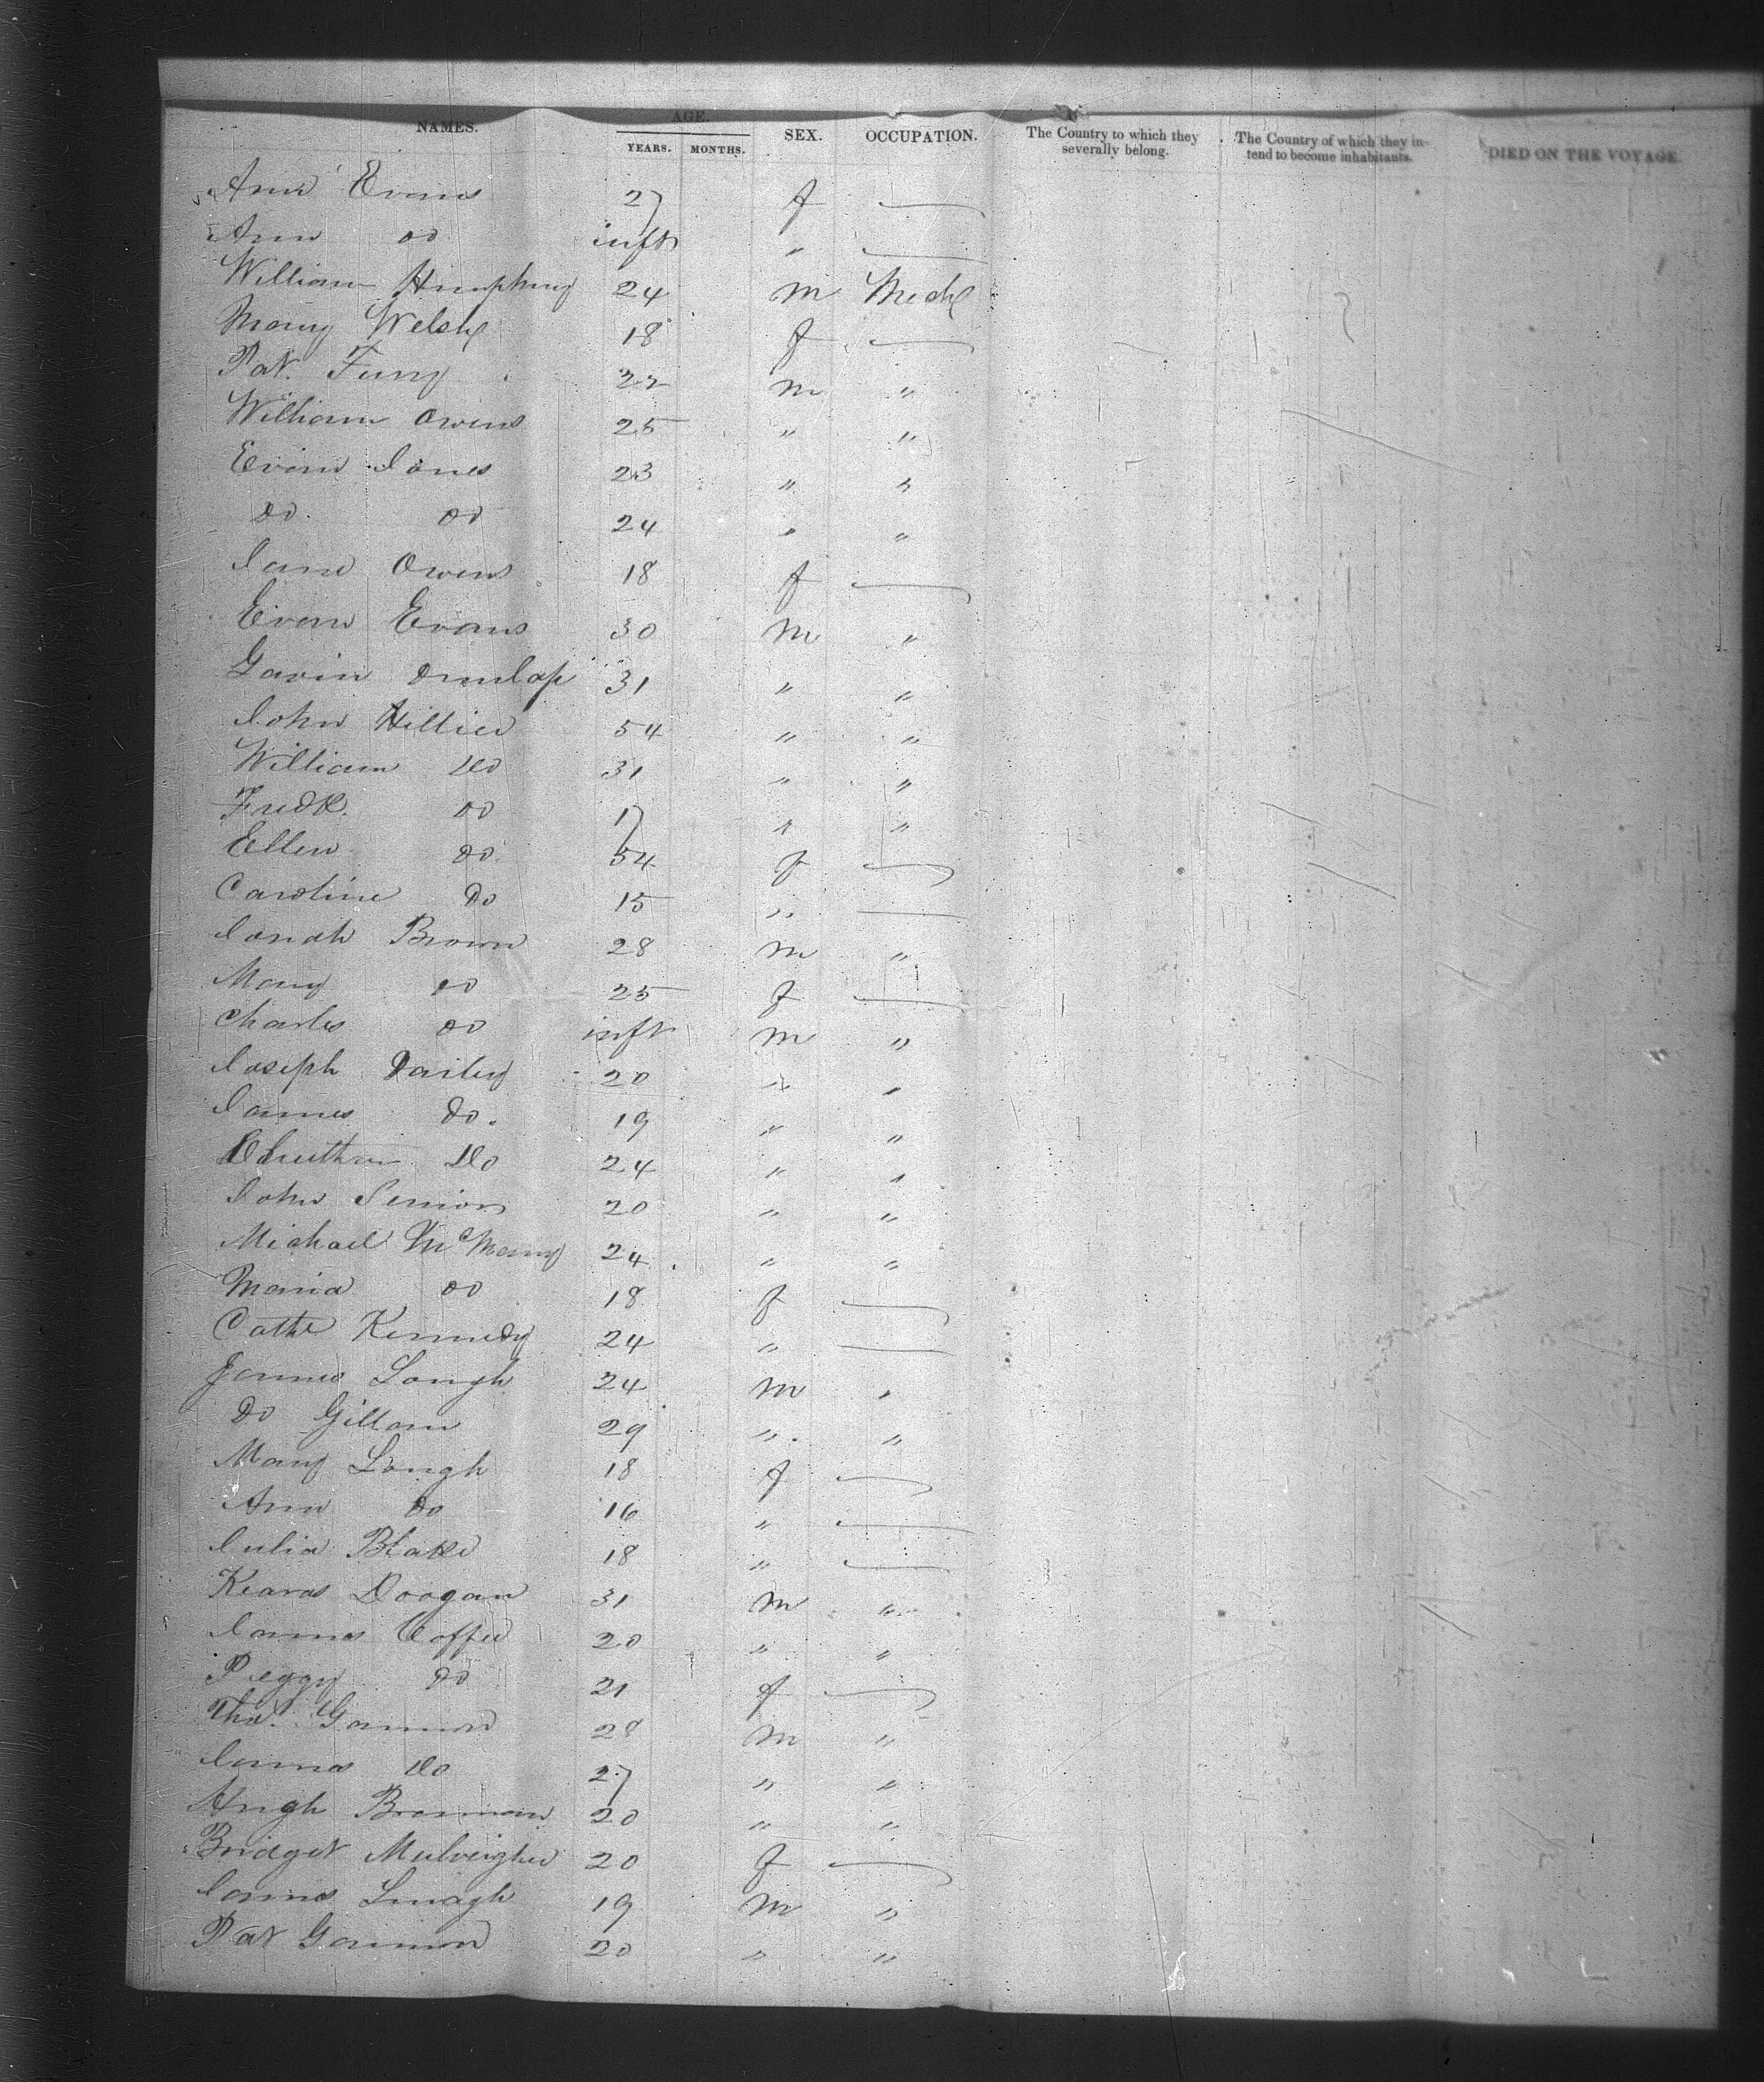 NAMES. AGE. YEARS. MONTHS. SEX. OCCUPATION. The Country to which they severally belong. The Country of which they intend to become inhabitants. DIED ON THE VOYAGE.
Ann Evans 27 f —
Ann do inft " —
William Humphrey 24 m Mech
Mary Welsh 18 f —
Pat. 22 m "
William Owens 25 " "
Evan Jones 23 " "
Do. do 24 " "
Jane Owens 18 f —
Evan Evans 30 m "
Gavin Dunlap 31 " "
John Hillier 54 " "
William Do 31 " "
Fredk. do 17 " "
Ellen do 54 f —
Caroline Do 15 " —
Jonah Brown 28 m "
Mary do 25 f —
Charles do inft m "
Joseph Dailey 20 " "
James Do. 19 " "
Do 24 " "
John Senior 20 " "
Michael McManny 24 " "
Maria do 18 f —
Cathe Kennedy 24 " —
James Lough 24 m "
Do Gillam 29 " "
Mary Lough 18 f —
Ann Do 16 " —
Julia Blake 18 " —
Doogan 31 m "
James Coffee 20 " "
Peggy do 21 f —
Thos. Gannon 28 m "
James Do 27 " "
Hugh Brannan 20 " "
Bridget 20 f —
James 19 m "
Pat Gannon 20 " "